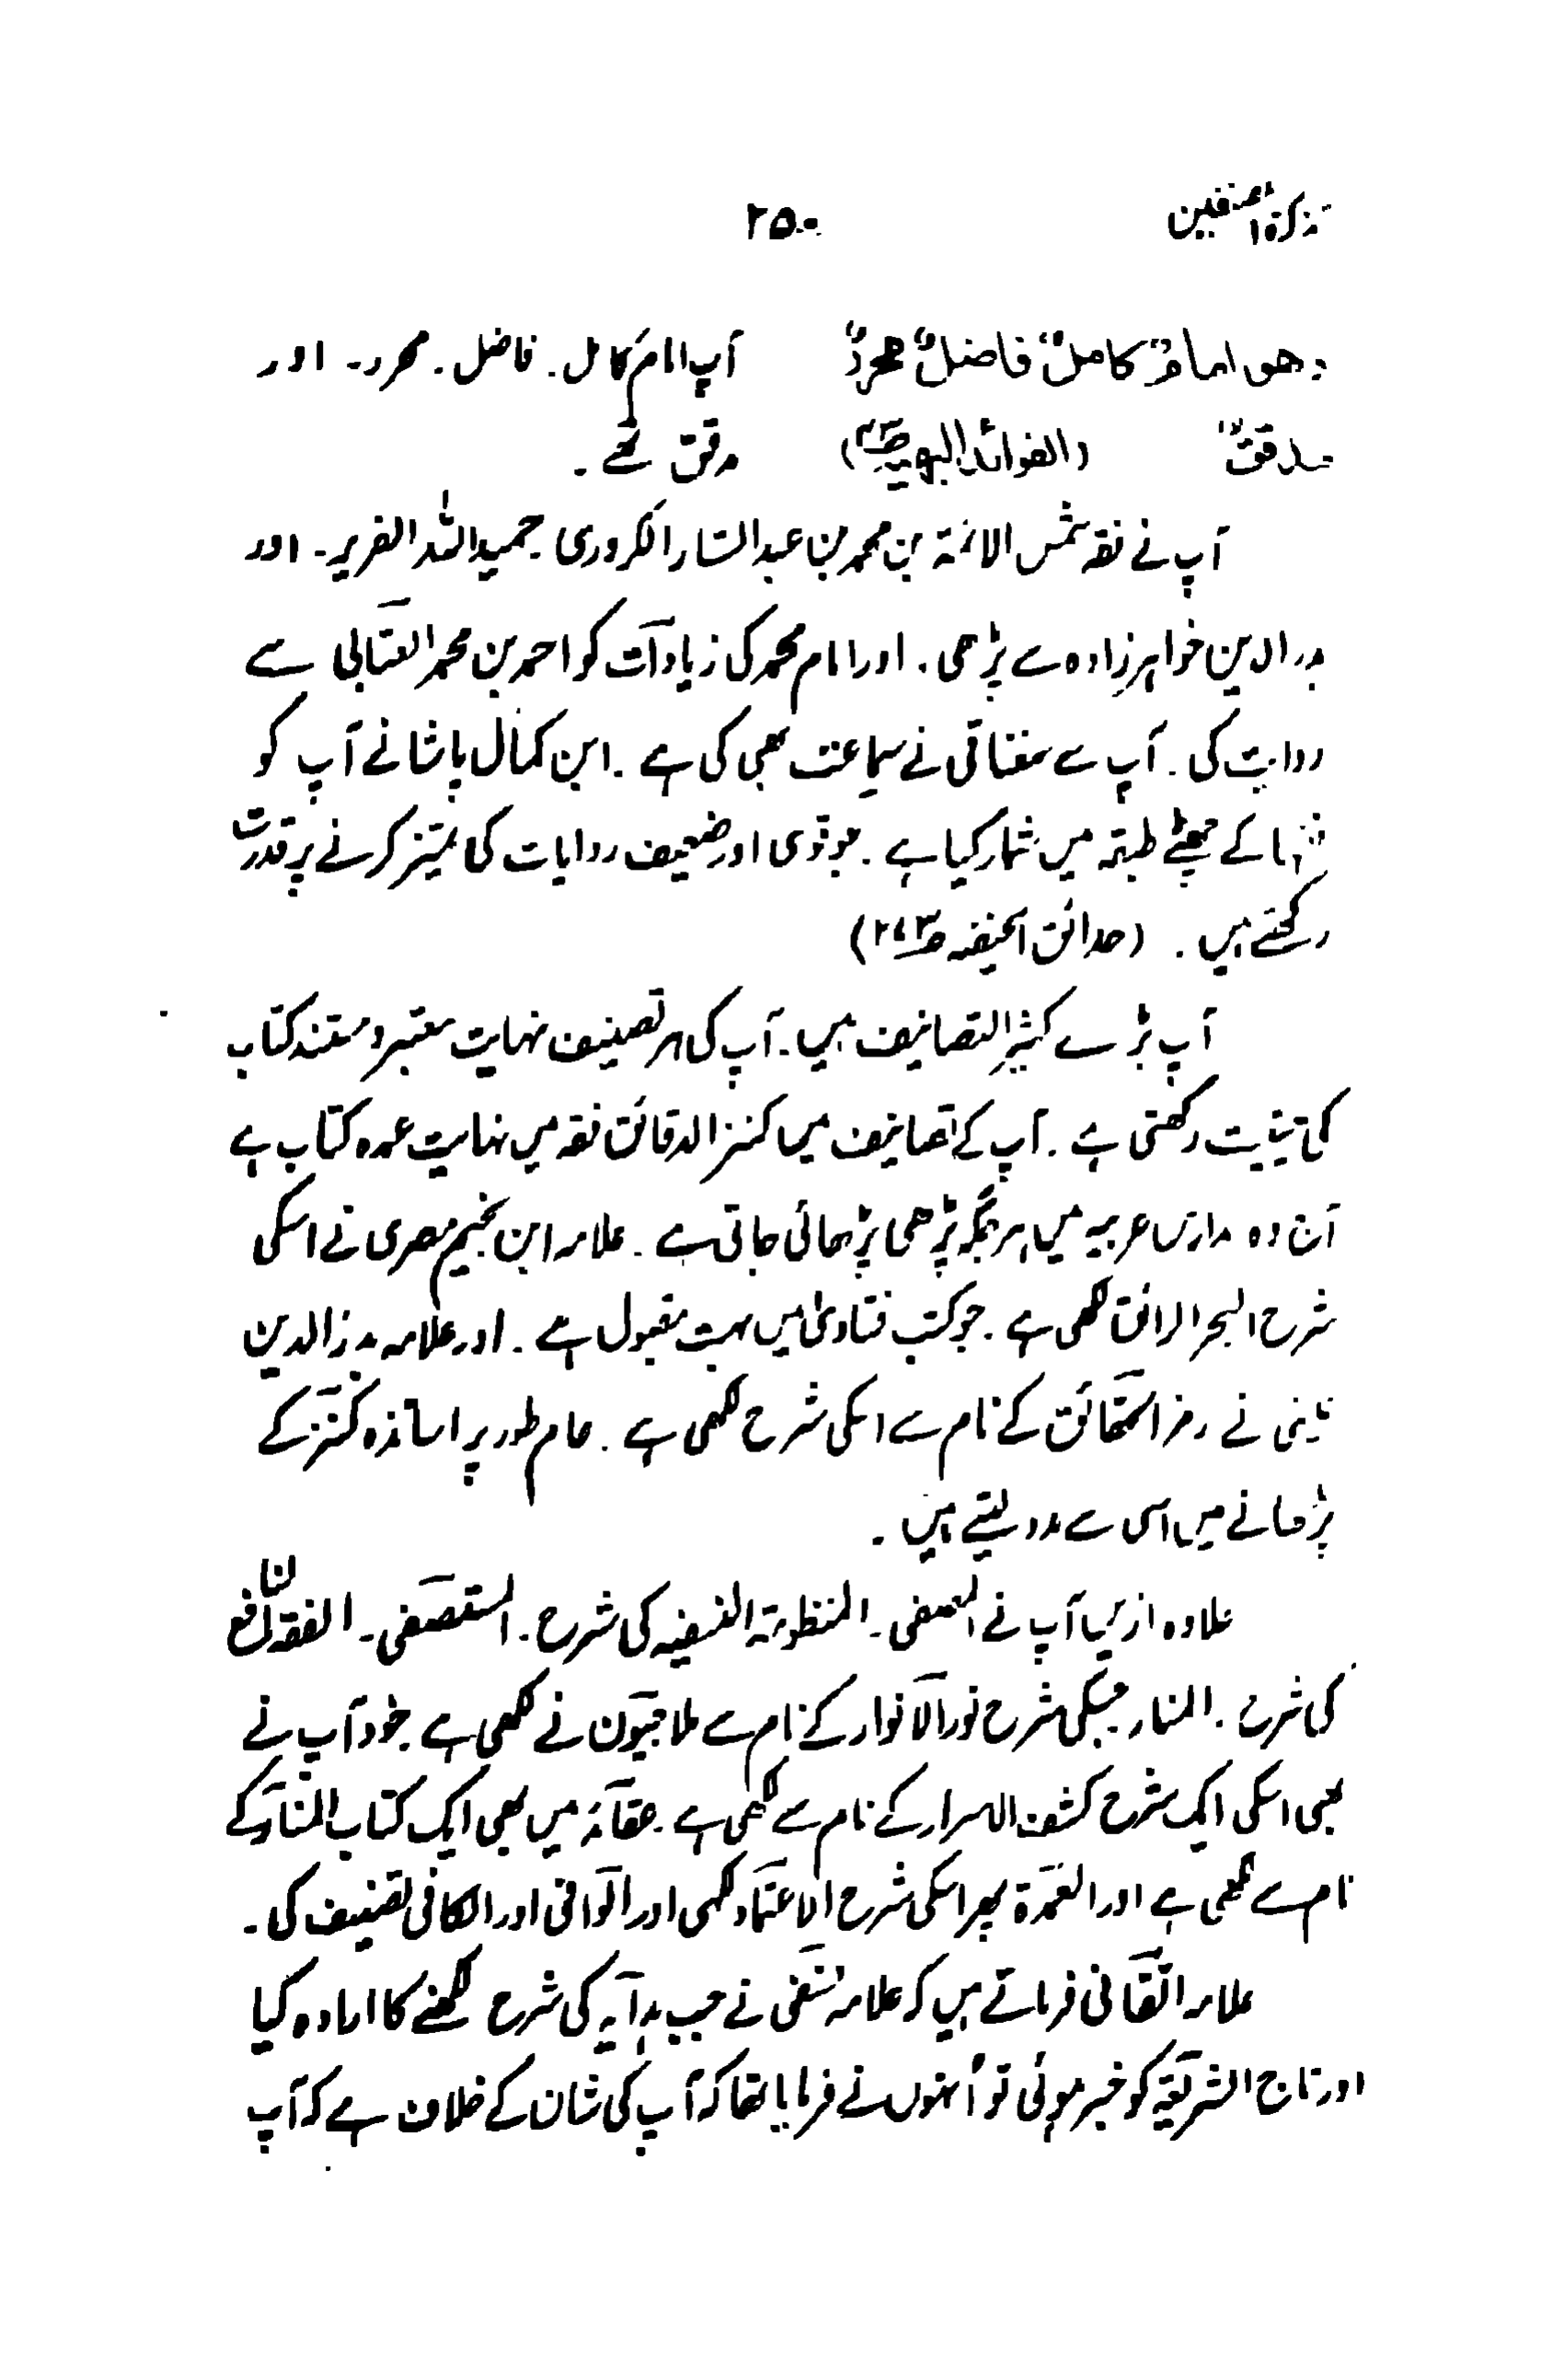 تذکرۃ المصنفین ۲۵۰
وھو امامٌ کاملٌ فاضلٌ محررٌ آپ امام کامل۔ فاضل۔ محرر۔ اور
مدققٌ (الفوائد البہیہ) مدقق تھے۔
آپ نے فقہ شمس الائمۃ بن محمد بن عبد الستار الکروری۔ حمید اللہ الضریر۔ اور
بدر الدین خواہر زادہ سے پڑھی۔ اور امام محمد کی زیادات کو احمد بن محمد العتابی سے
روایت کی۔ آپ سے سغناقی نے سماعت بھی کی ہے۔ ابن کمال پاشا نے آپ کو
فقہا کے چھٹے طبقہ میں شمار کیا ہے۔ جو قوی اور ضعیف روایات کی تمیز کرنے پر قدرت
رکھتے ہیں۔ (حدائق الحنفیہ)
آپ بڑے کثیر التصانیف ہیں۔ آپ کی ہر تصنیف نہایت معتبر و مستند کتاب
کی حیثیت رکھتی ہے۔ آپ کے تصانیف میں کنز الدقائق فقہ میں نہایت عمدہ کتاب ہے
آج وہ مدارس عربیہ میں ہر جگہ پڑھی پڑھائی جاتی ہے۔ علامہ ابن نجیم مصری نے اسکی
شرح البحر الرائق لکھی ہے۔ جو کتب فتاویٰ میں بہت مقبول ہے۔ اور علامہ بدر الدین
عینی نے رمز الحقائق کے نام سے اسکی شرح لکھی ہے۔ عام طور پر اساتذہ کنز کے
پڑھانے میں اسی سے مدد لیتے ہیں۔
علاوہ ازیں آپ نے المصفی۔ المنظومۃ النسفیہ کی شرح۔ المستصفی۔ الفقہ النافع
کی شرح۔ المنار جسکی شرح نور الانوار کے نام سے ملا جیون نے لکھی ہے خود آپ نے
بھی اسکی ایک شرح کشف الاسرار کے نام سے لکھی ہے۔ عقائد میں بھی ایک کتاب المنار کے
نام سے لکھی ہے اور العمدۃ پھر اسکی شرح الاعتماد لکھی اور الوافی اور الکافی تصنیف کی۔
علامہ اتقانی فرماتے ہیں کہ علامہ نسفی نے جب ہدایہ کی شرح لکھنے کا ارادہ کیا
اور تاج الشریعۃ کو خبر ہوئی تو اُنہوں نے فرمایا تھا کہ آپ کی شان کے خلاف ہے کہ آپ